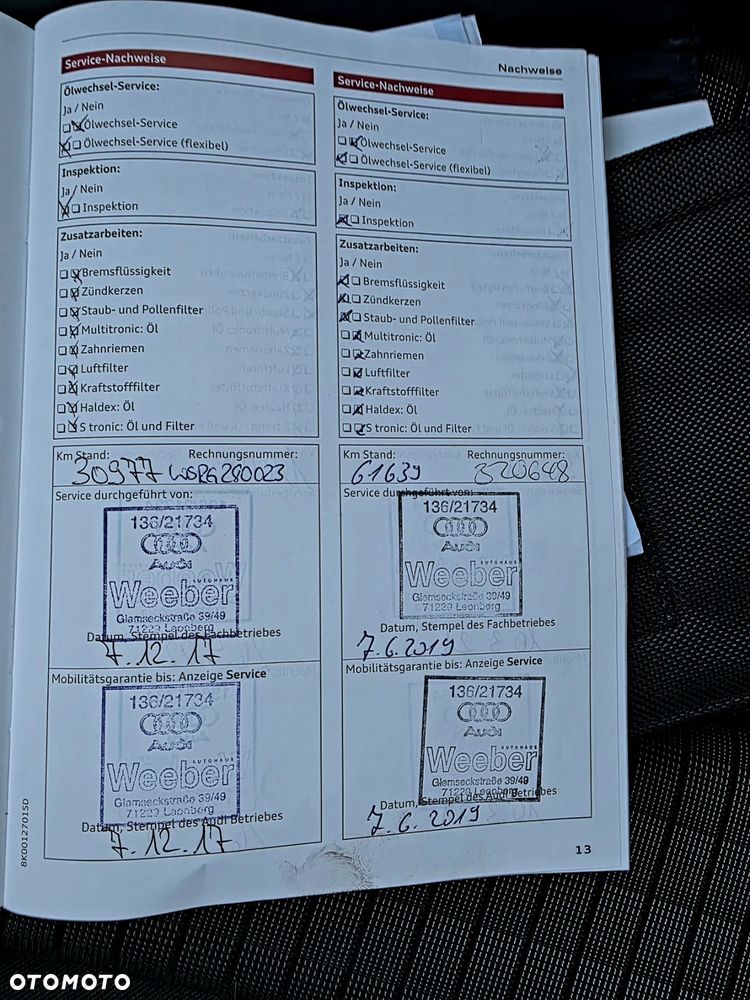 Nachweise
Service-Nachweise
Ölwechsel-Service:
Ja / Nein
Ölwechsel-Service
Ölwechsel-Service (flexibel)
Inspektion:
Ja / Nein
Inspektion
Zusatzarbeiten:
Ja / Nein
Bremsflüssigkeit
Zündkerzen
Staub- und Pollenfilter
Multitronic: Öl
Zahnriemen
Luftfilter
Kraftstofffilter
Haldex: Öl
S tronic: Öl und Filter
Km Stand: Rechnungsnummer:
30977 WSRG280023
Service durchgeführt von:
136/21734
Audi
AUTOHAUS
Weeber
Glemseckstraße 39/49
71229 Leonberg
Datum, Stempel des Fachbetriebes
7.12.17
Mobilitätsgarantie bis: Anzeige Service
136/21734
Audi
AUTOHAUS
Weeber
Glemseckstraße 39/49
71229 Leonberg
Datum, Stempel des Audi Betriebes
7.12.17
8K0012701SD
Service-Nachweise
Ölwechsel-Service:
Ja / Nein
Ölwechsel-Service
Ölwechsel-Service (flexibel)
Inspektion:
Ja / Nein
Inspektion
Zusatzarbeiten:
Ja / Nein
Bremsflüssigkeit
Zündkerzen
Staub- und Pollenfilter
Multitronic: Öl
Zahnriemen
Luftfilter
Kraftstofffilter
Haldex: Öl
S tronic: Öl und Filter
Km Stand: Rechnungsnummer:
61639 320648
Service durchgeführt von:
136/21734
Audi
AUTOHAUS
Weeber
Glemseckstraße 39/49
71229 Leonberg
Datum, Stempel des Fachbetriebes
7.6.2019
Mobilitätsgarantie bis: Anzeige Service
136/21734
Audi
AUTOHAUS
Weeber
Glemseckstraße 39/49
71229 Leonberg
Datum, Stempel des Audi Betriebes
7.6.2019
13
OTOMOTO